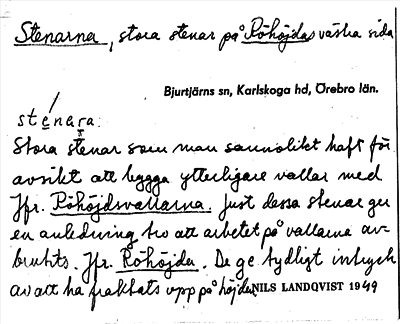 Stenarna, stora stenar på Röhöjdas västra sida
Bjurtjärns sn, Karlskoga hd, Örebro län.
sténara:
Stora stenar som man sannolikt haft för
avsikt att bygga ytterligare vallar med
Jfr. Röhöjdsvallarna. Just dessa stenar ger
en anledning tro att arbetet på vallarna av-
brutits. Jfr. Röhöjda. De ge tydligt intryck
av att ha fraktats upp på höjden.
NILS LANDQVIST 1949